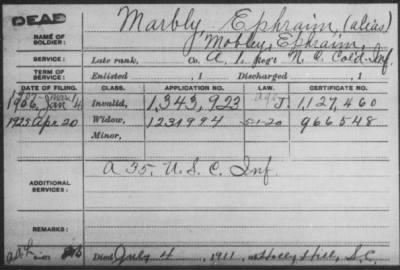 DEAD
NAME OF SOLDIER:
Marbly, Ephraim, (alias)
Mobley, Ephraim,
SERVICE:
Late rank, Co. A, 1, Reg't N. C. Col'd Inf.
TERM OF SERVICE:
Enlisted , 1 Discharged , 1
DATE OF FILING. CLASS. APPLICATION NO. LAW. CERTIFICATE NO.
1906, Jan 4 Invalid, 1,343,922 age J. 1,127,460
1925 Apr 20 Widow, 1231994 5-1-20 966548
Minor,
ADDITIONAL SERVICES:
A 35, U. S. C. Inf.
REMARKS:
Died July 4, 1911, at Holly Hill, S.C.